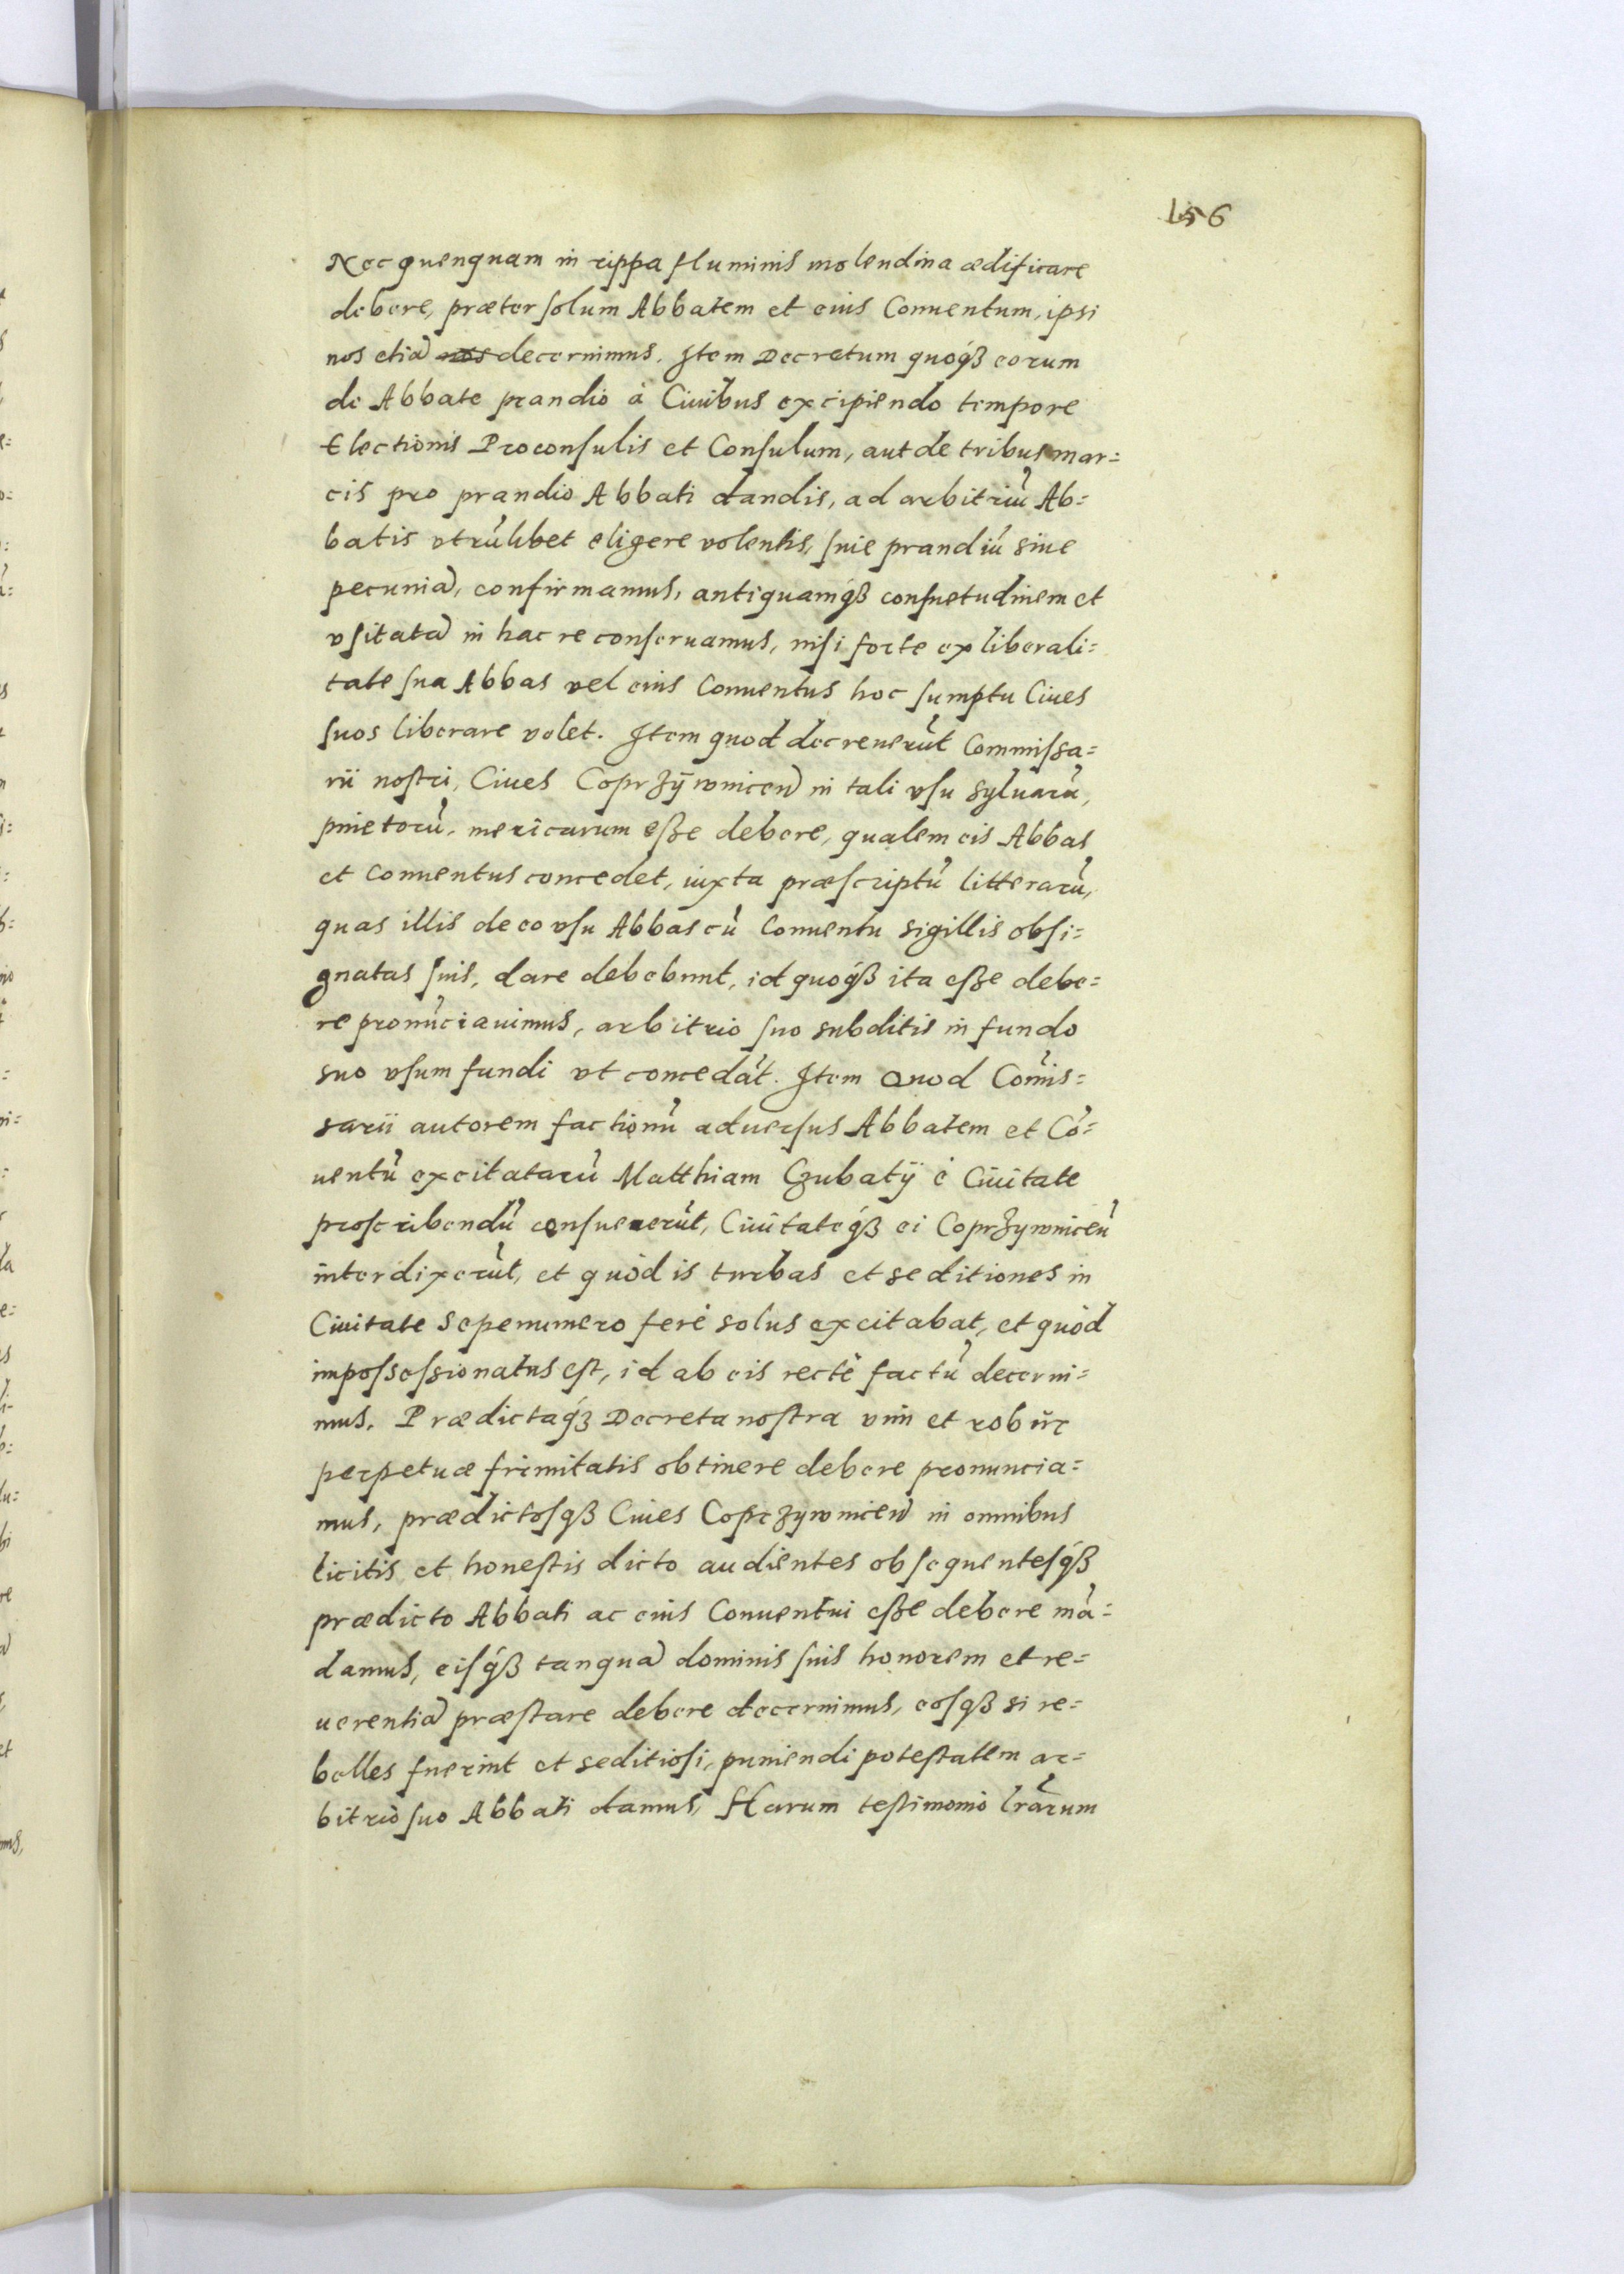 156
Nec quenquam in rippa fluminis molendina ædificare
debere, præter ſolum Abbatem et eius Conuentum, ipsi
nos etiā nos decernimus. Item Decretum quoqȝ eorum
de Abbate prandio à Ciuibus excipiendo tempore
Electionis Proconſulis et Conſulum, aut de tribus mar=
cis pro prandio Abbati dandis, ad arbitriū Ab=
batis vtrūlibet eligere volentis, ſiue prandiū siue
pecuniā, confirmamus, antiquamqȝ conſuetudinem et
vſitatā in hac re conſeruamus, niſi forte ex liberali=
tate ſua Abbas vel eius Conuentus hoc ſumptu Ciues
ſuos liberare volet. Item quod decreuerūt Commiſsa=
rii noſtri, Ciues Coprzÿwniceñ in tali vſu syluarū,
pinetorū, mericarum eſse debere, qualem eis Abbas
et Conuentus concedet, iuxta præſcriptū litterarū,
quas illis de eo vſu Abbas cū Conuentu sigillis obſi=
gnatas ſuis, dare debebunt, id quoqȝ ita eſse debe=
re pronūciauimus, arbitrio ſuo subditis in fundo
suo vſum fundi vt concedāt. Item Quod Comis̄=
sarii autorem factionū aduerſus Abbatem et Cō=
uentū excitatarū Matthiam Gzubatÿ è Ciuitate
proſcribendū cenſuererūt, Ciuitateqȝ ei Coprzywniceñ
interdixerūt, et quòd is turbas et seditiones in
Ciuitate sepenumero ferè solus excitabat, et quòd
impoſseſsionatus eſt, id ab eis rectè factū decerni=
mus. Prædictaqȝ Decreta noſtra vim et robur
perpetuæ frimitatis obtinere debere pronuncia=
mus, prædictoſqȝ Ciues Coprzywniceñ in omnibus
licitis et honeſtis dicto audientes obſequenteſqȝ
prædicto Abbati ac eius Conuentui eſse debere mā=
damus, eiſqȝ tanquā dominis ſuis honorem et re=
uerentiā præſtare debere decernimus, eoſqȝ si re=
belles fuerint et seditioſi, puniendi poteſtatem ar=
bitrio ſuo Abbati damus, Harum teſtimonio lrārum